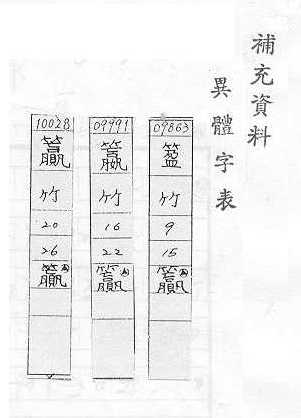 補充資料
異體字表
09863
竹
9
15
籯
09991
籝
竹
16
22
籯
10028
籯
竹
20
26
籯